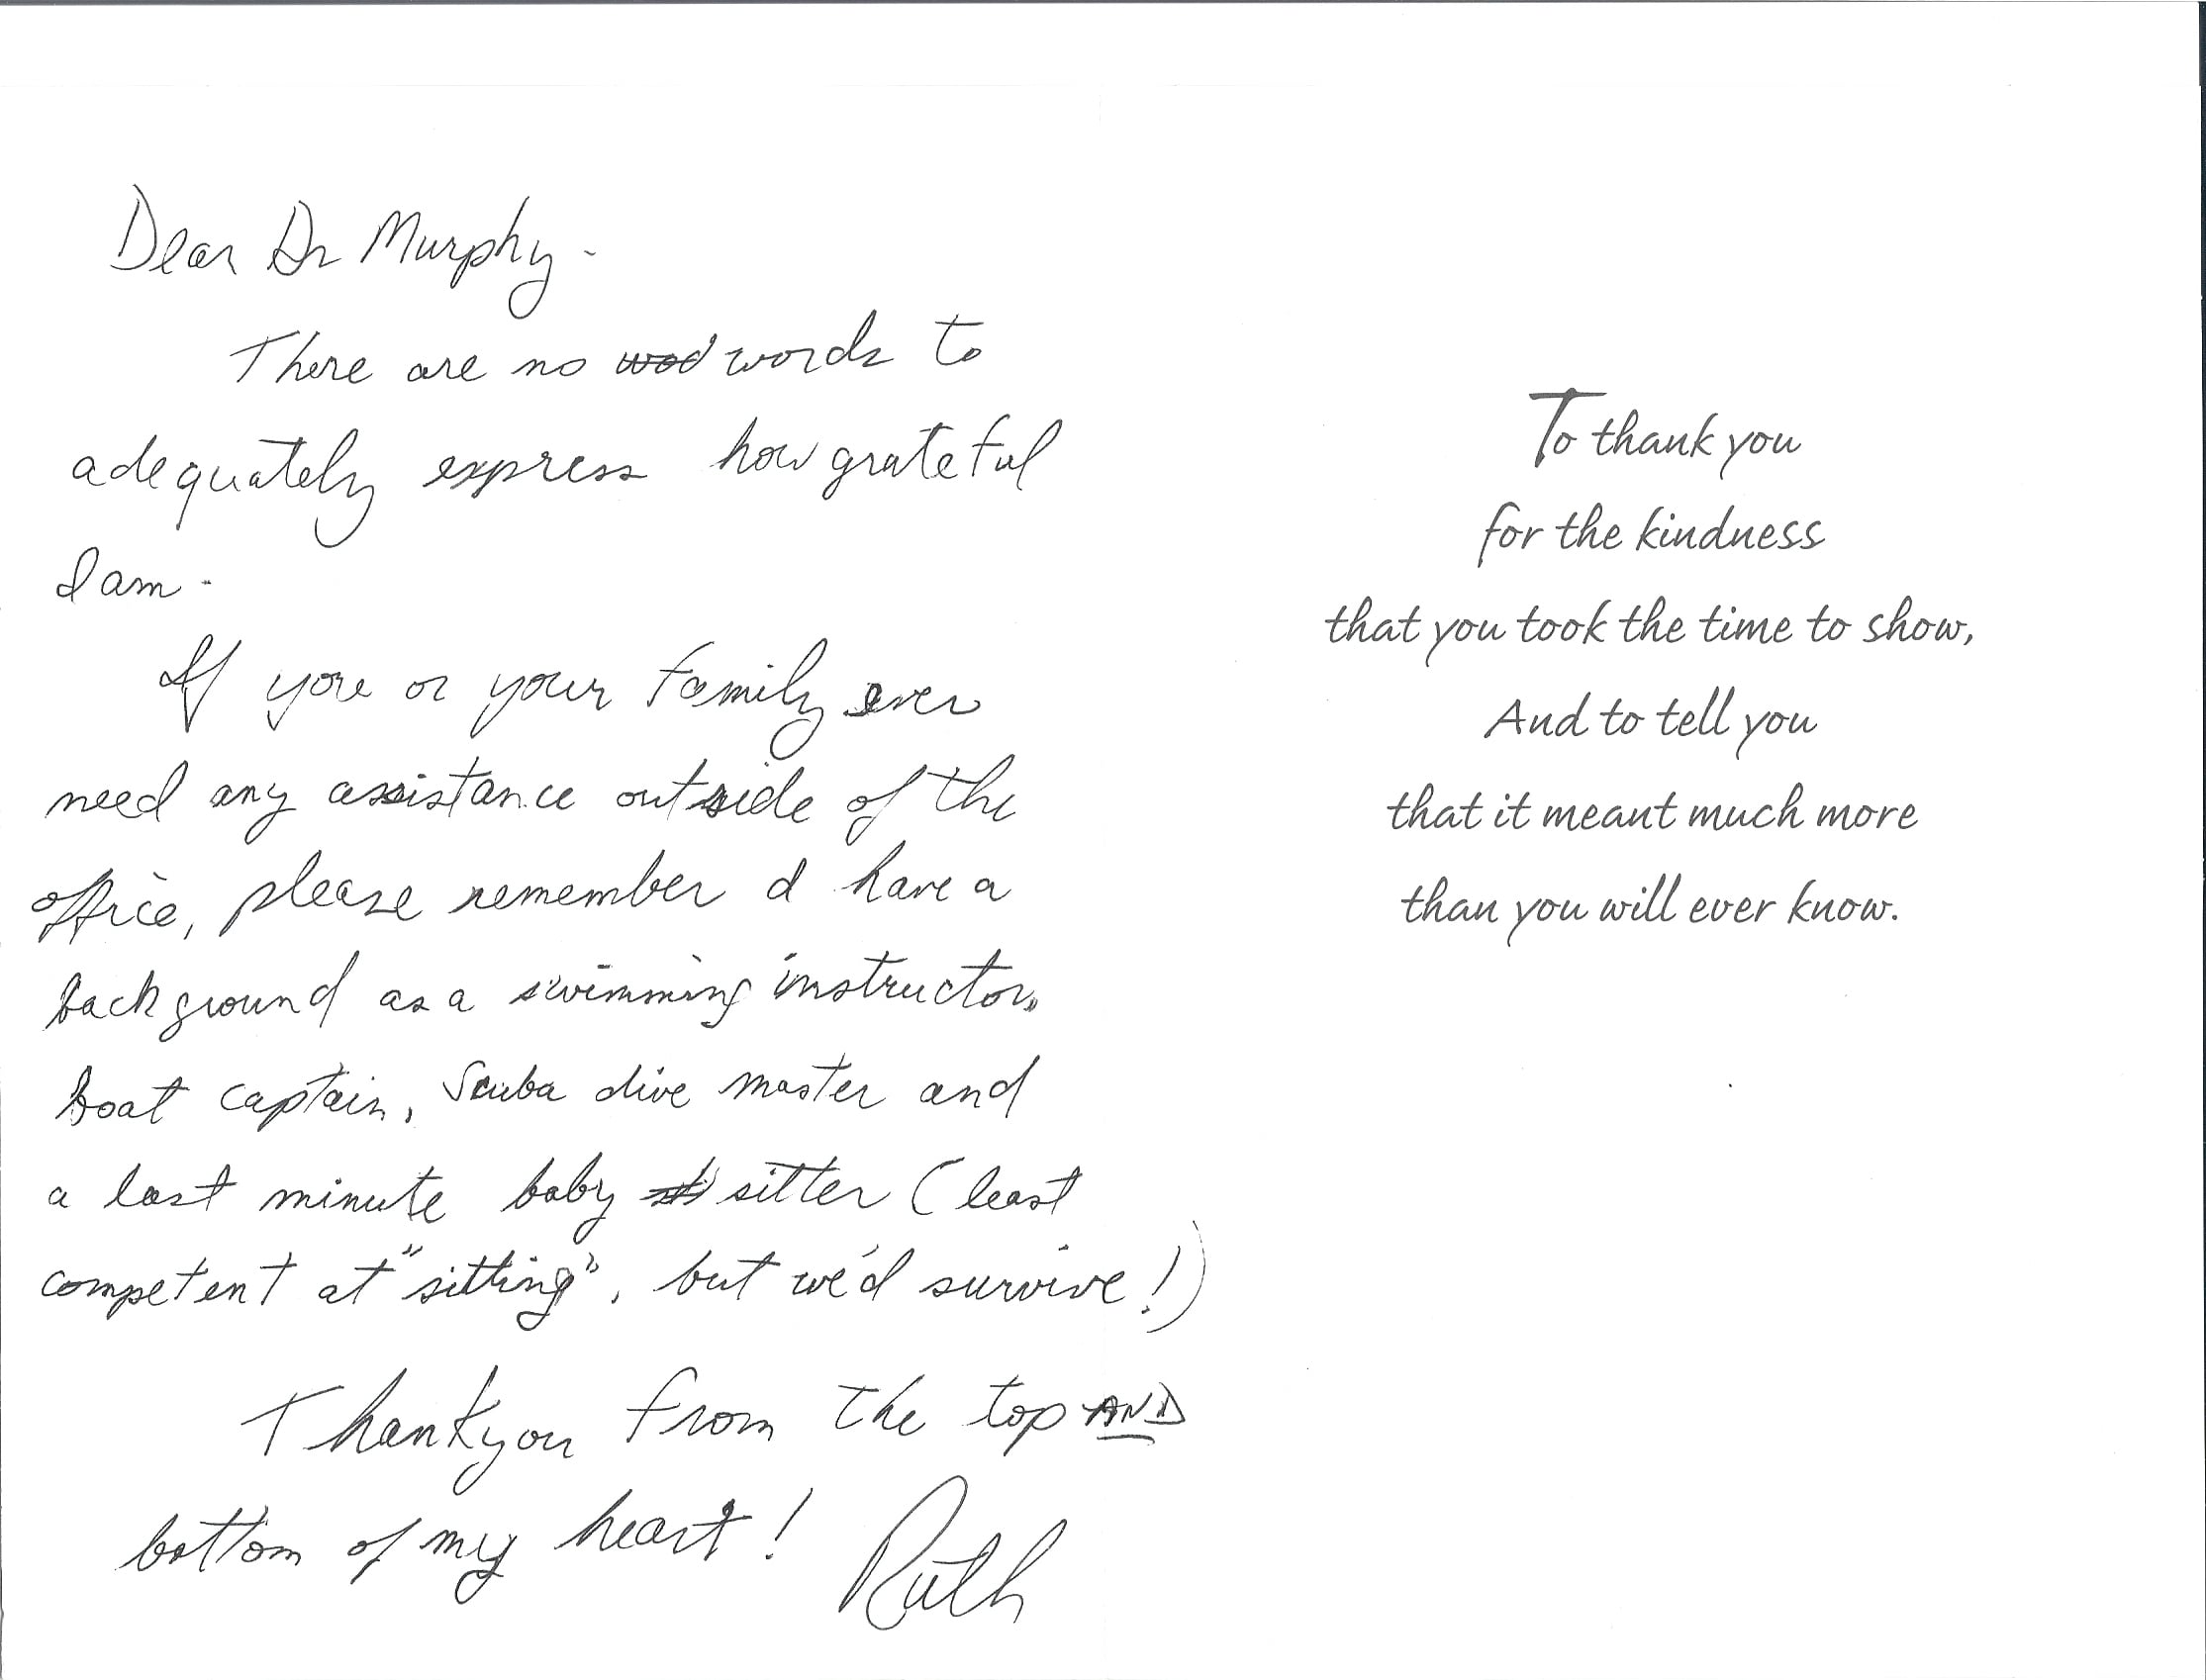 Dear Dr Murphy -
There are no wod words to
adequately express how grateful
I am -
If you or your family ever
need any assistance outside of the
office, please remember I have a
background as a swimming instructor,
boat captain, Scuba dive master and
a last minute baby sitter (least
competent at "sitting", but we'd survive!)
Thank you from the top AND
bottom of my heart!
Ruth
To thank you
for the kindness
that you took the time to show,
And to tell you
that it meant much more
than you will ever know.